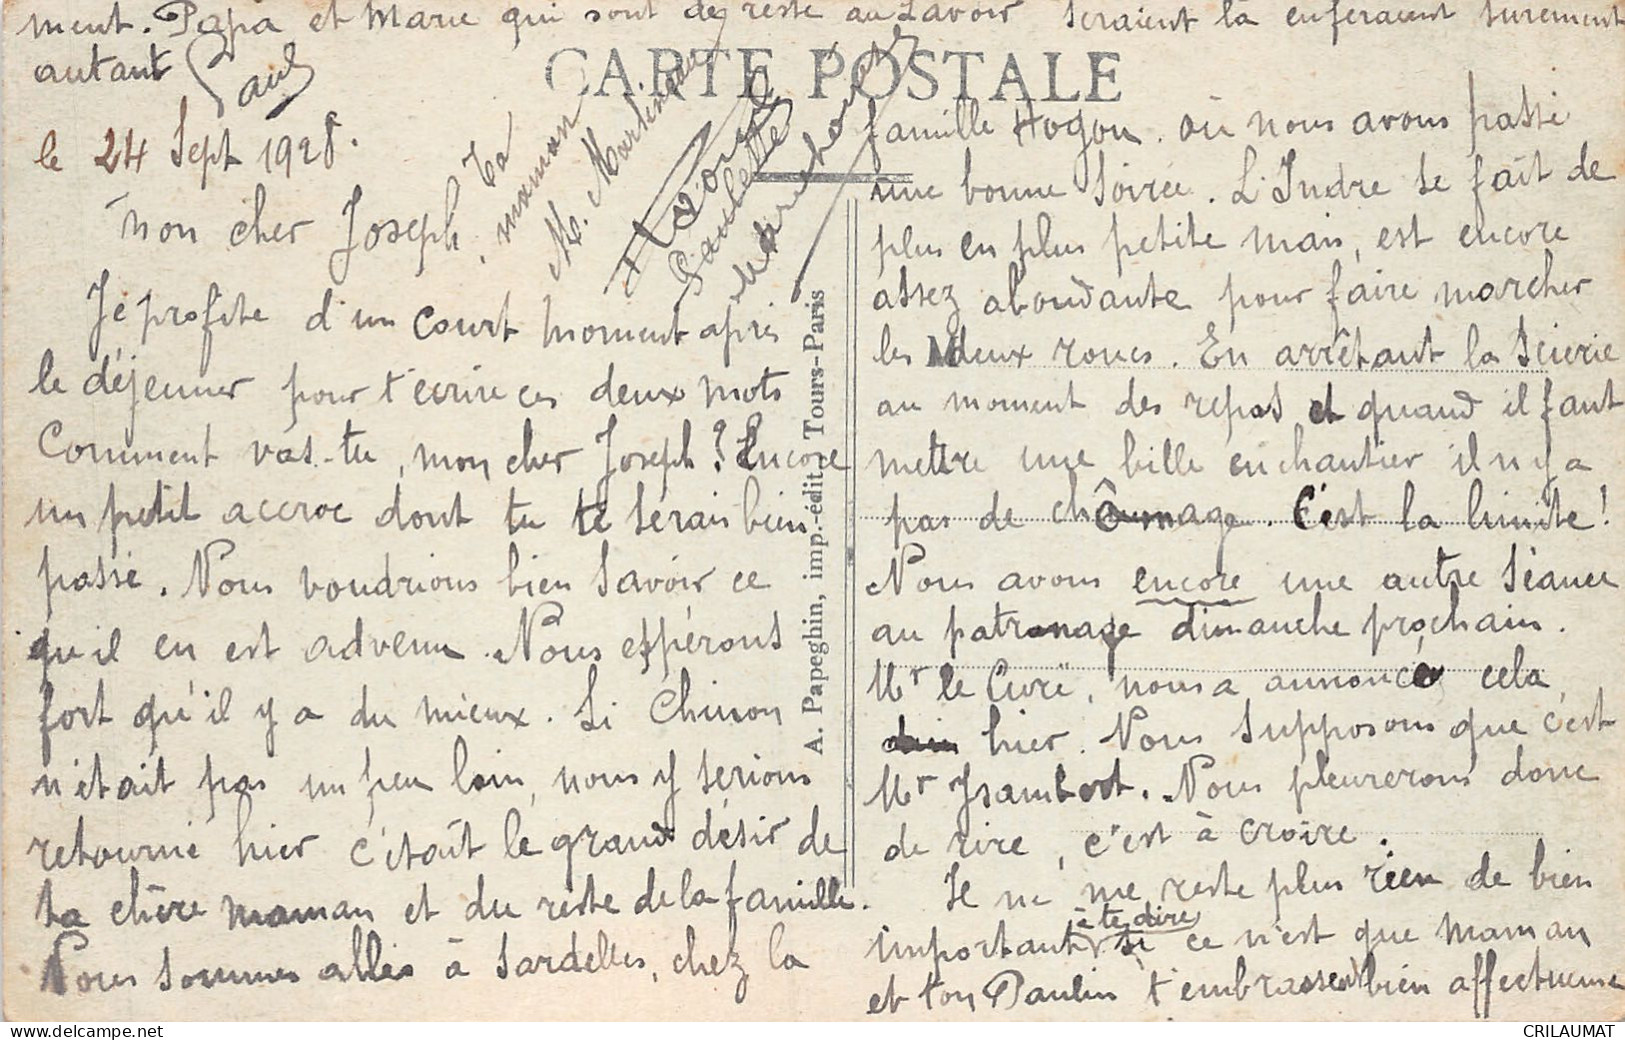 ment. Papa et Marie qui sont de reste au Lavoir seraient là enferaient surement
autant
Paul
CARTE POSTALE
le 24 Sept 1928.
Ta
maman
M. Martineau
Paulette
Mon cher Joseph,
Je profite d'un court moment après
le déjeuner pour t'écrire ces deux mots
Comment vas-tu, mon cher Joseph? Encore
un petit accroc dont tu te serais bien
passé. Nous voudrions bien savoir ce
qu'il en est advenu. Nous espérons
fort qu'il y a du mieux. Si Chinon
n'était pas un peu loin, nous y serions
retourné hier c'était le grand désir de
ta chère maman et du reste de la famille.
Nous sommes allés à Sardelles, chez la
A. Papeghin, imp.-édit., Tours-Paris
famille Hogou. où nous avons passé
une bonne soirée. L'Indre se fait de
plus en plus petite mais, est encore
assez abondante pour faire marcher
les deux roues. En arrêtant la Scierie
au moment des repas et quand il faut
mettre une bille en chantier il n y a
pas de chômage. C'est la limite!
Nous avons encore une autre séance
au patronage dimanche prochain.
Mr le Curé, nous a annoncé cela
hier. Nous supposons que c'est
Mr Isambert. Nous pleurerons donc
de rire, c'est à croire.
Je ne me reste plus rien de bien
important à te dire si ce n'est que Maman
et ton Paulin t'embrassent bien affectueuse
CRILAUMAT